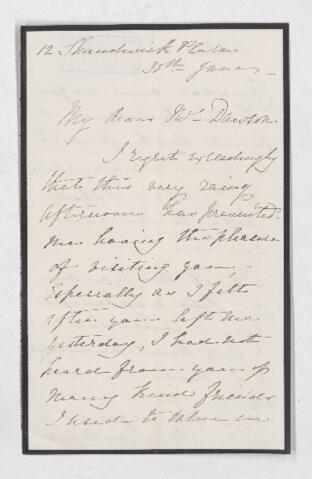 12 Shandwick Place
30th June
My dear Mr Dawson
I regret exceedingly
that this very rainy
afternoon has prevented
me having the pleasure
of visiting you,
especially as I felt
after you left me
yesterday, I had not
heard from you of
many kind friends
I used to value in